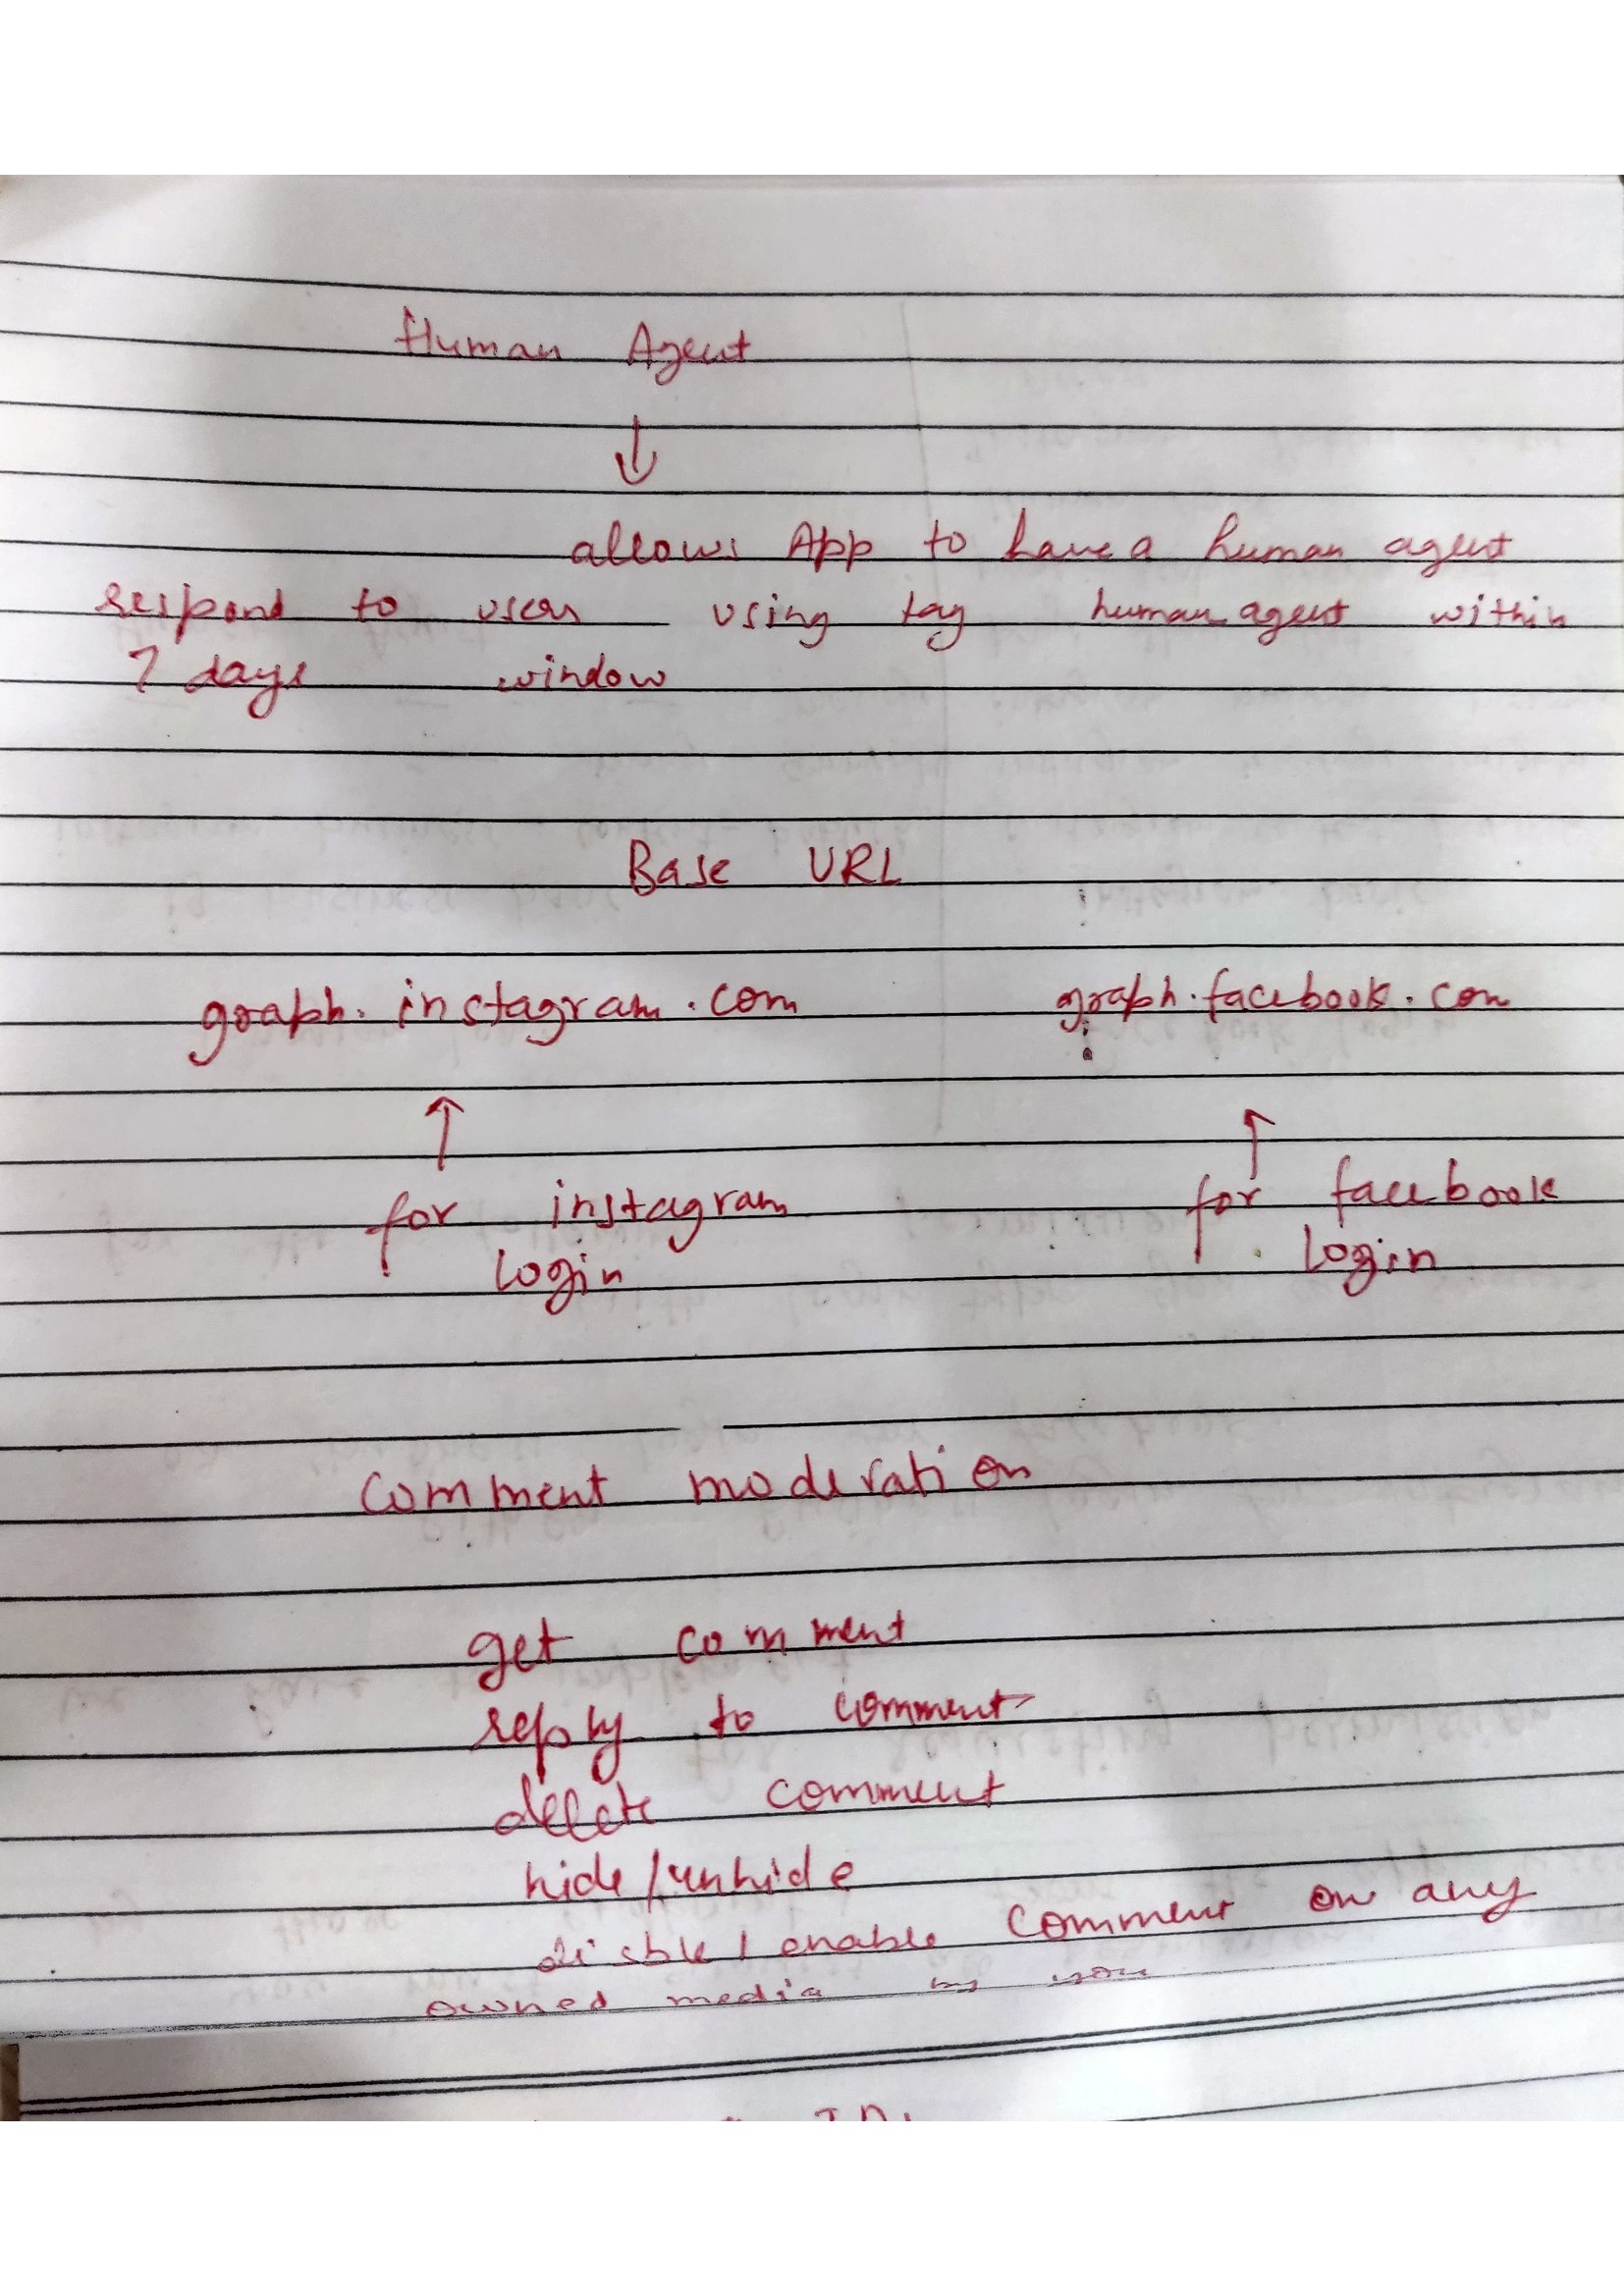 Human Agent
↓
allows App to have a human agent
respond to users using tag human agent within
7 days window
Base URL
graph.instagram.com graph.facebook.com
↑ ↑
for instagram for facebook
login login
Comment moderation
get comment
reply to comment
delete comment
hide/unhide
disble/enable Comment on any
owned media by you